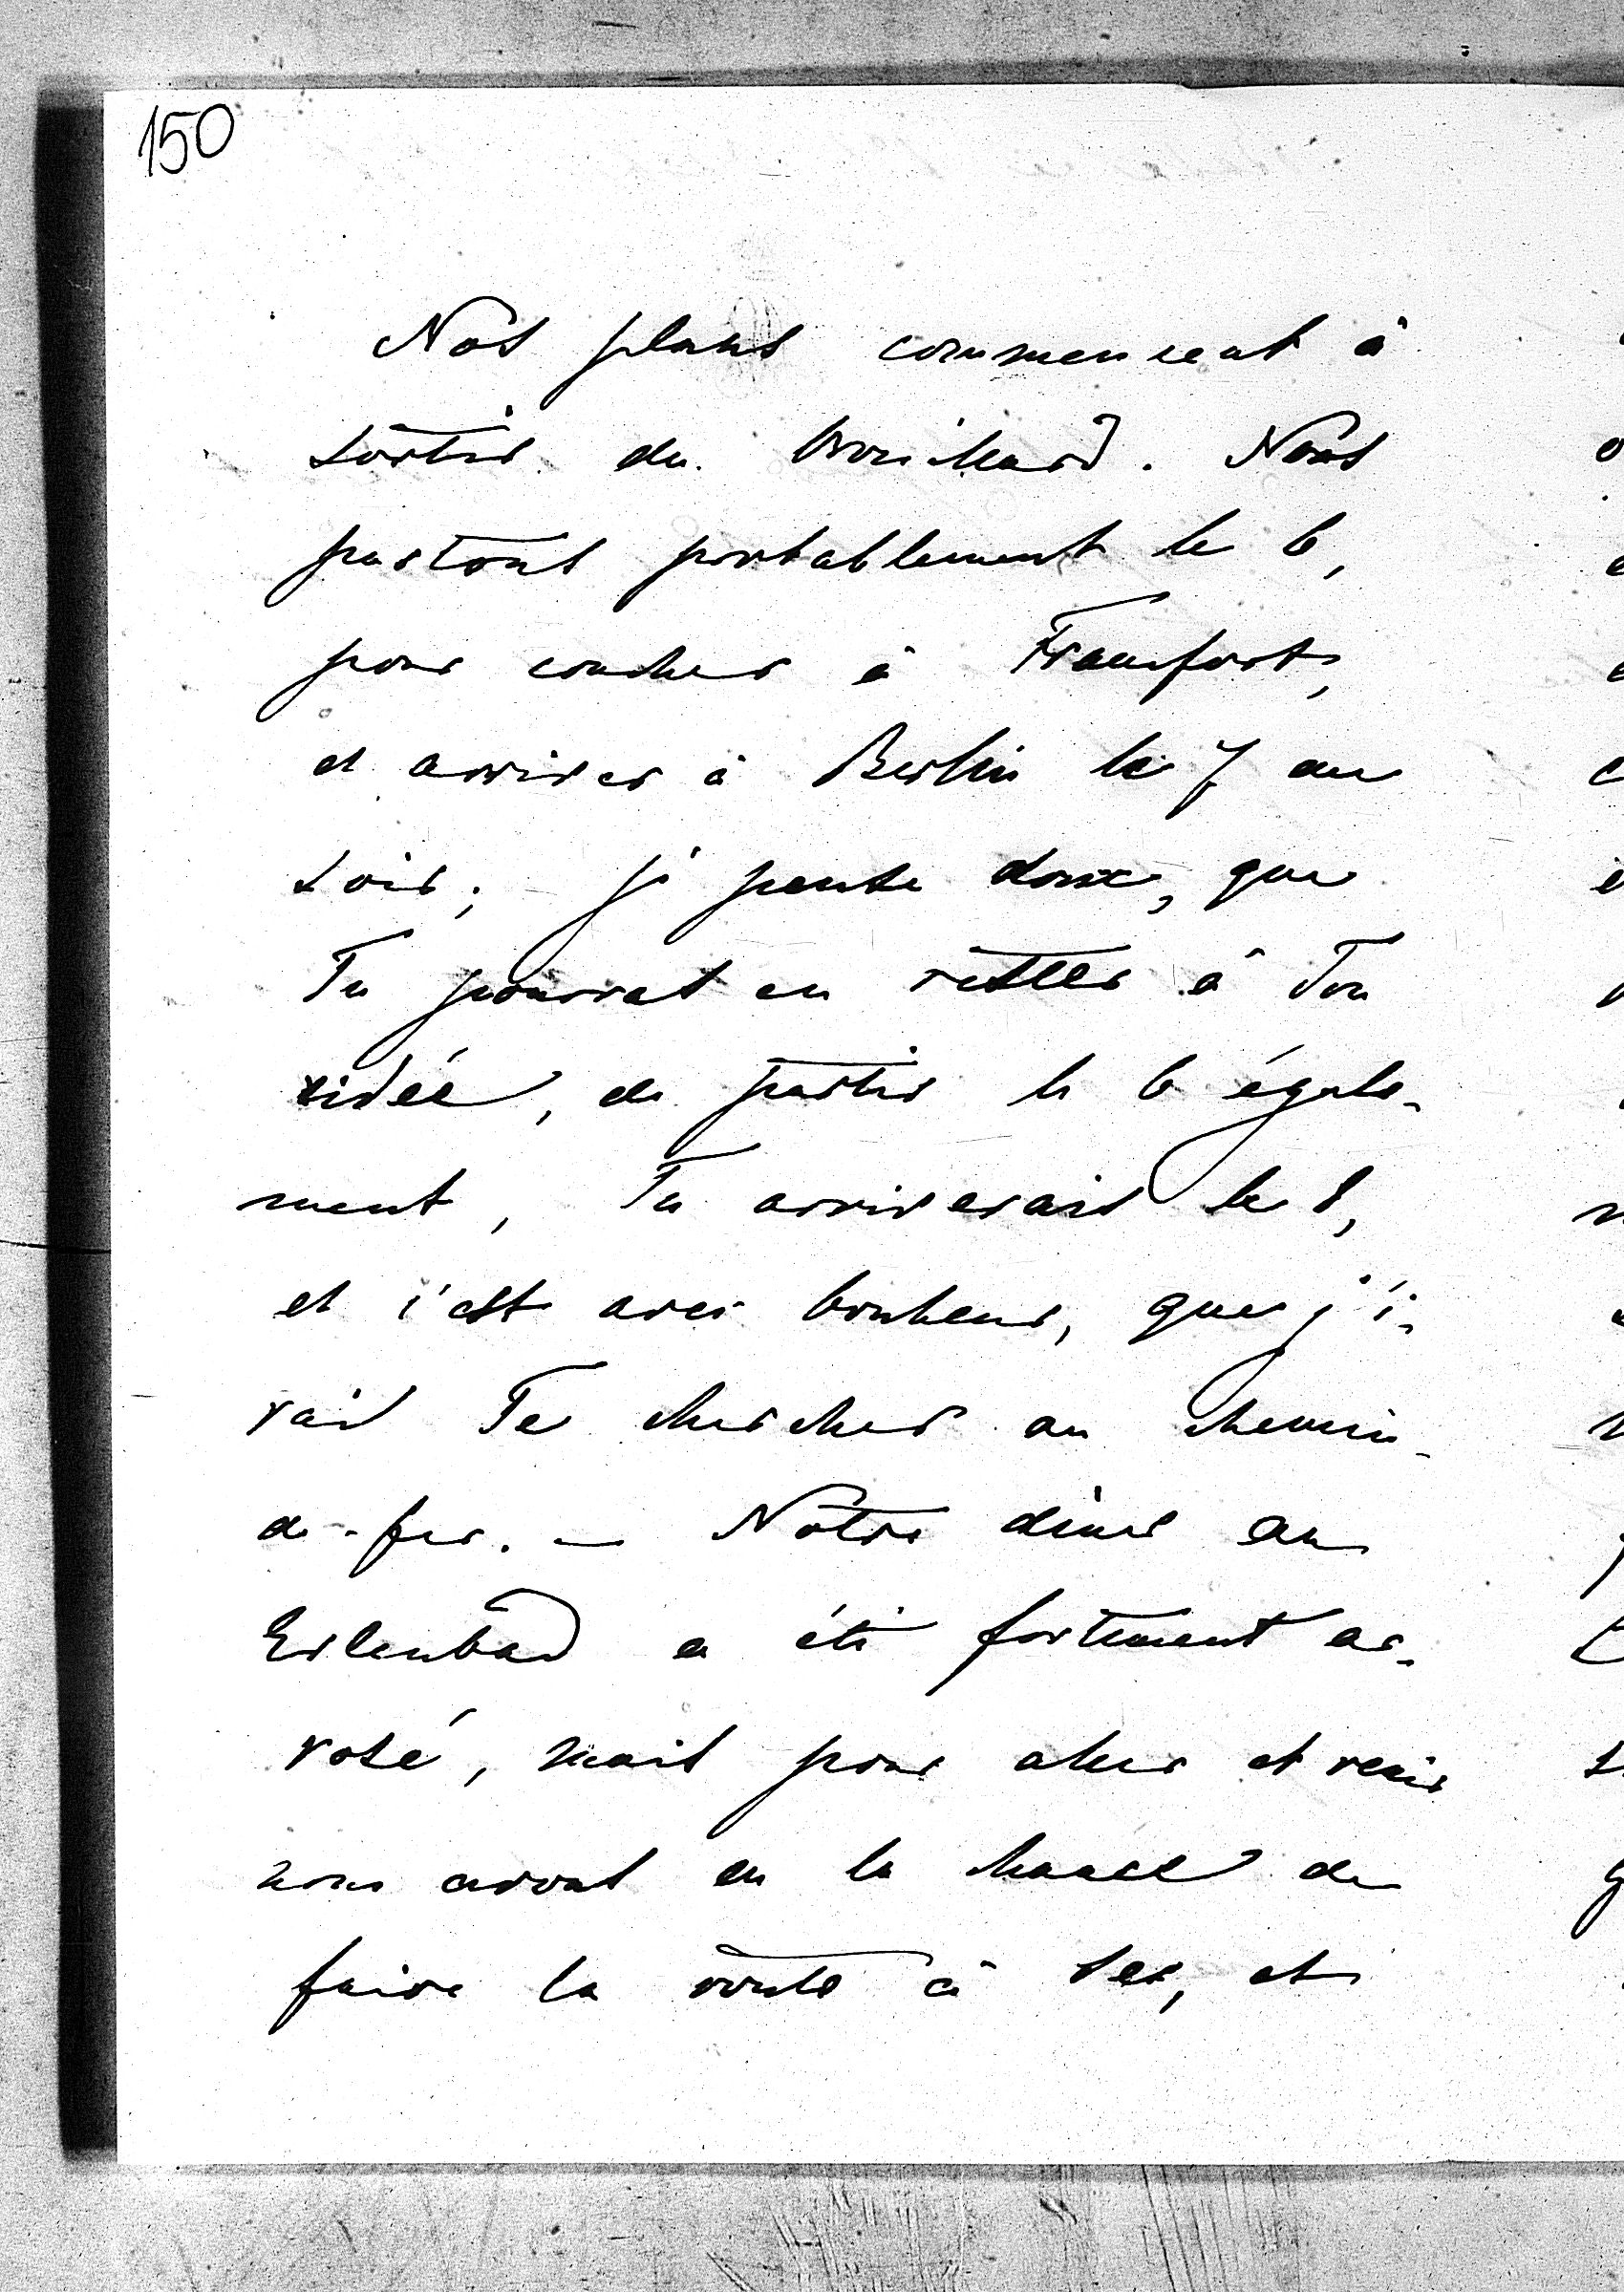 150
Nos plans commencent à
sortir du brouillard. Nous
partons probablement le 6,
pour coucher à Francfort,
et arriver à Berlin le 7 au
soir; je pense donc, que
Tu pourras en rester à Ton
idée, de partir le 6 égale-
ment, Tu arriverais le 8,
et c'est avec bonheur, que j'i-
rais Te chercher au chemin-
de-fer. — Notre dîner au
Erlenbad a été fortement ar-
rosé, mais pour aller et venir
nous avons eu la chance de
faire la route à sec, et